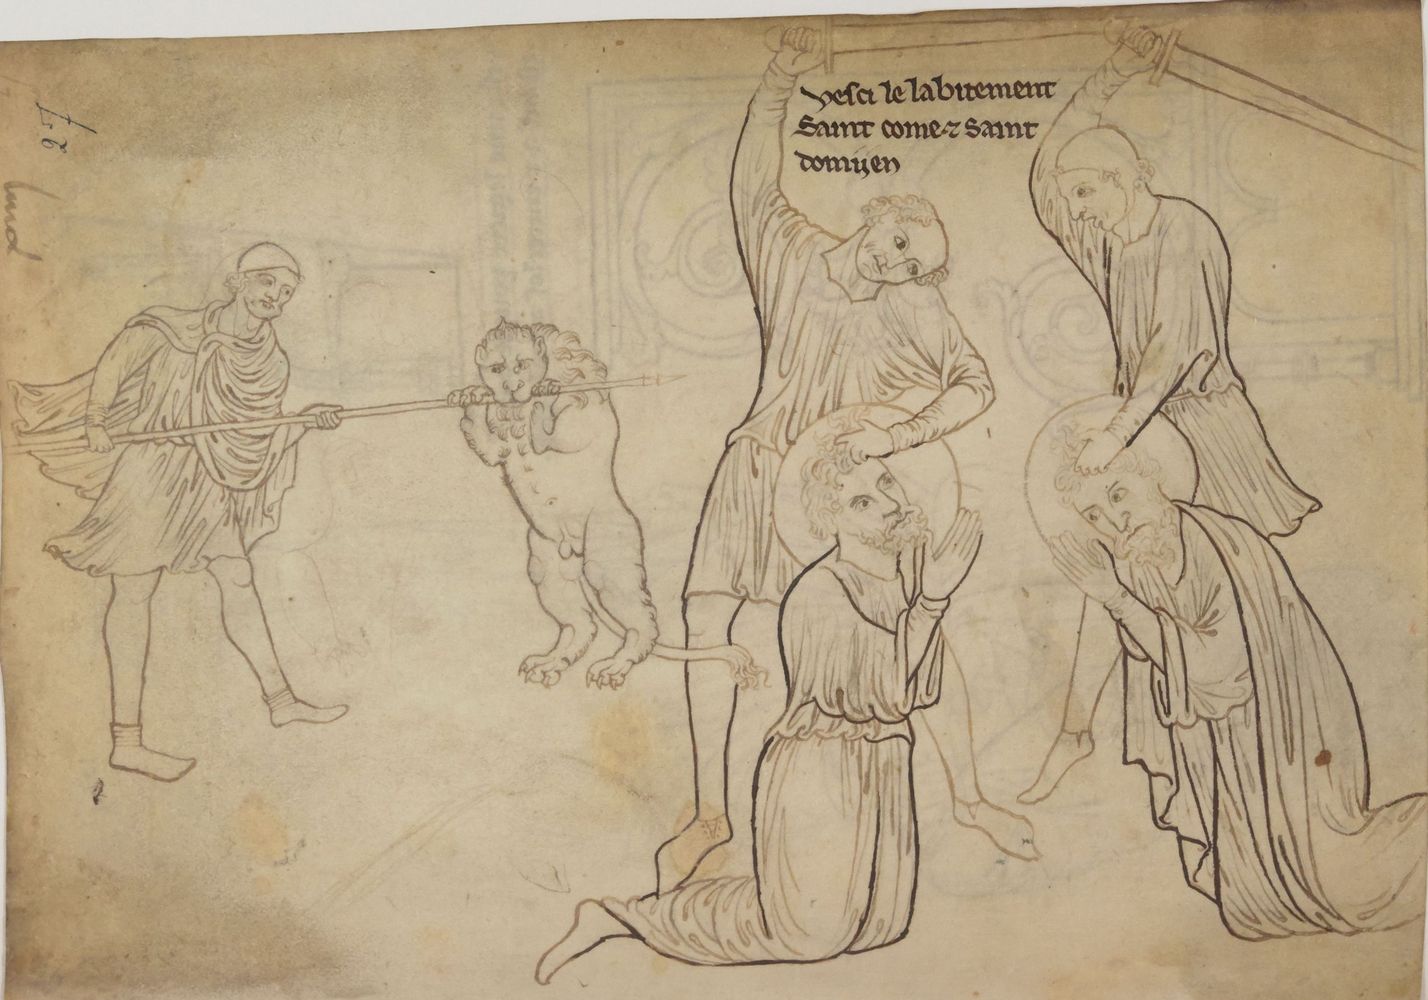 vesci le labitement
Saint come ⁊ saint
domijen